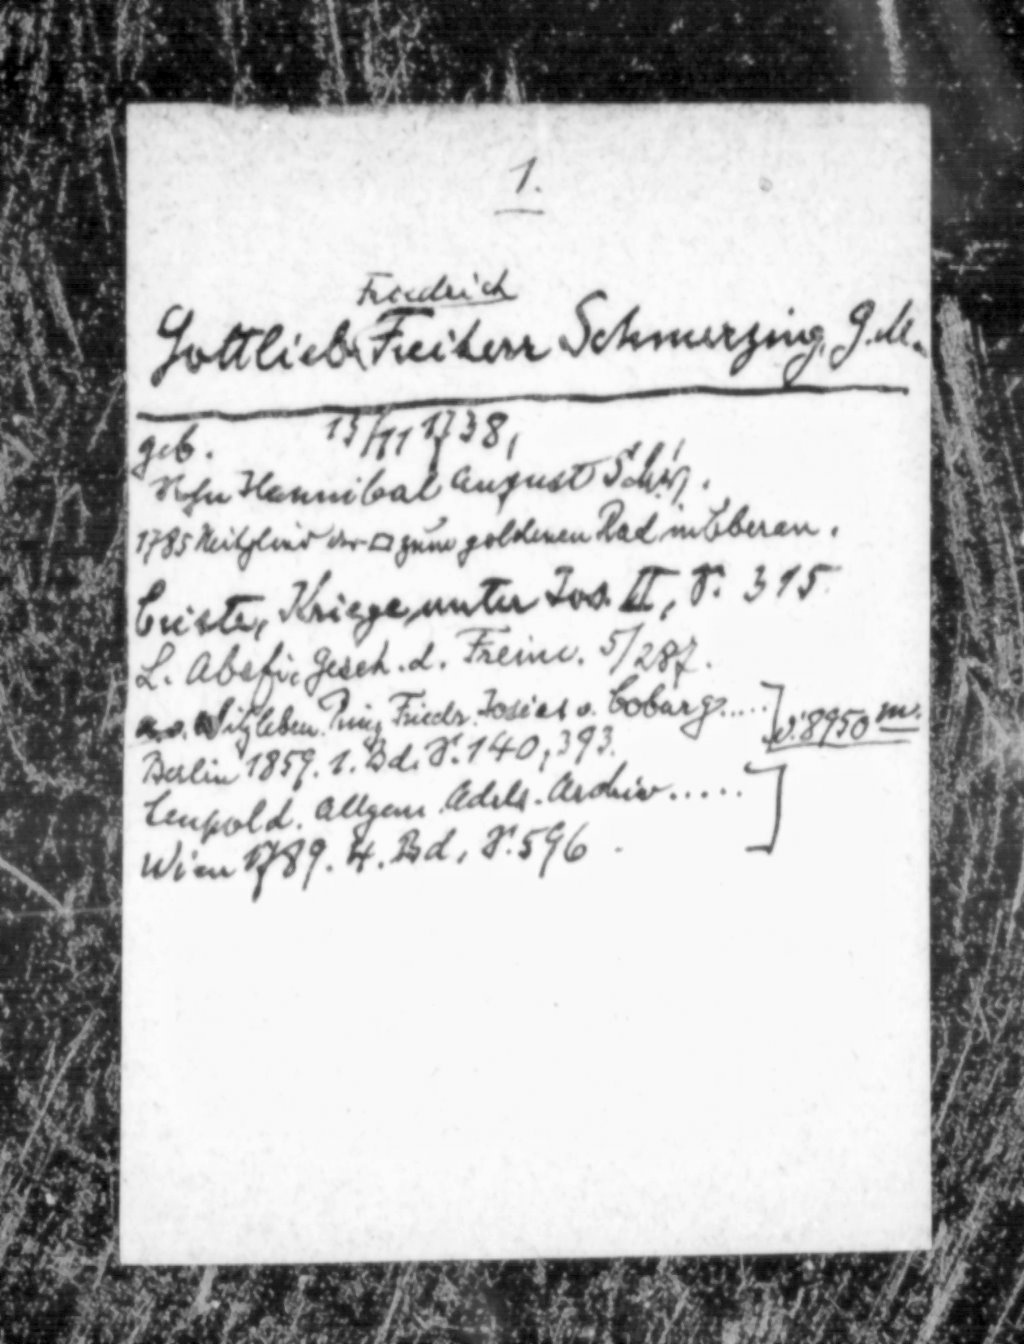 1.
Friedrich
Gottlieb Freiherr Schmerzing, G.M.
geb. 13/11 1738,
Sohn Hannibal August Sch's.
1785 Mitglied der □ zum goldenen Rad in Eberau.
Criste, Kriege unter Jos. II, S. 315.
L. Abafi. Gesch. d. Freim. 5/287.
A. v. Witzleben. Prinz Friedr. Josias v. Coburg.....
Berlin 1859. 1. Bd. S. 140, 393.
8950 m.
Leupold. Allgem. Adels-Archiv.....
Wien 1789. 4. Bd. S. 596.